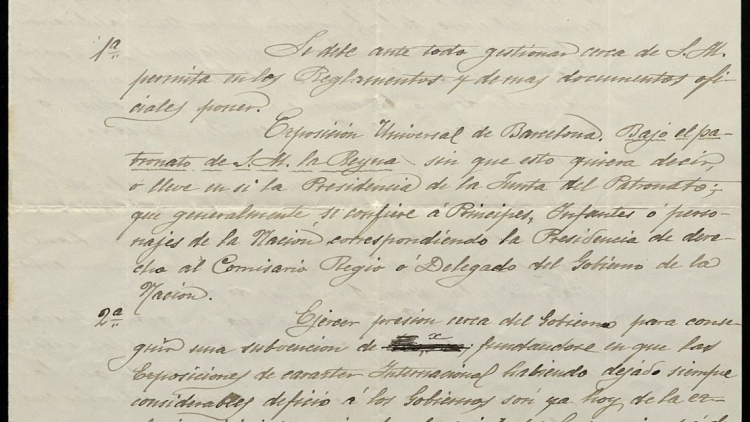 1ª Se debe ante todo gestionar cerca de S. M.
permita en los Reglamentos y demas documentos ofi-
ciales poner.
Exposición Universal de Barcelona. Bajo el pa-
tronato de S. M. la Reyna sin que esto quiera decir,
o lleve en si la Presidencia de la Junta del Patronato;
que generalmente se confiere á Principes, Infantes ó perso-
najes de la Nación correspondiendo la Presidencia de dere-
cho al Comisario Regio ó Delegado del Gobierno de la
Nación.
2ª Ejercer presión cerca del Gobierno para conse-
guir una subvencion de x, fundandose en que las
Exposiciones de caracter Internacional habiendo dejado siempre
considerables deficio á los Gobiernos son ya hoy de la ex-